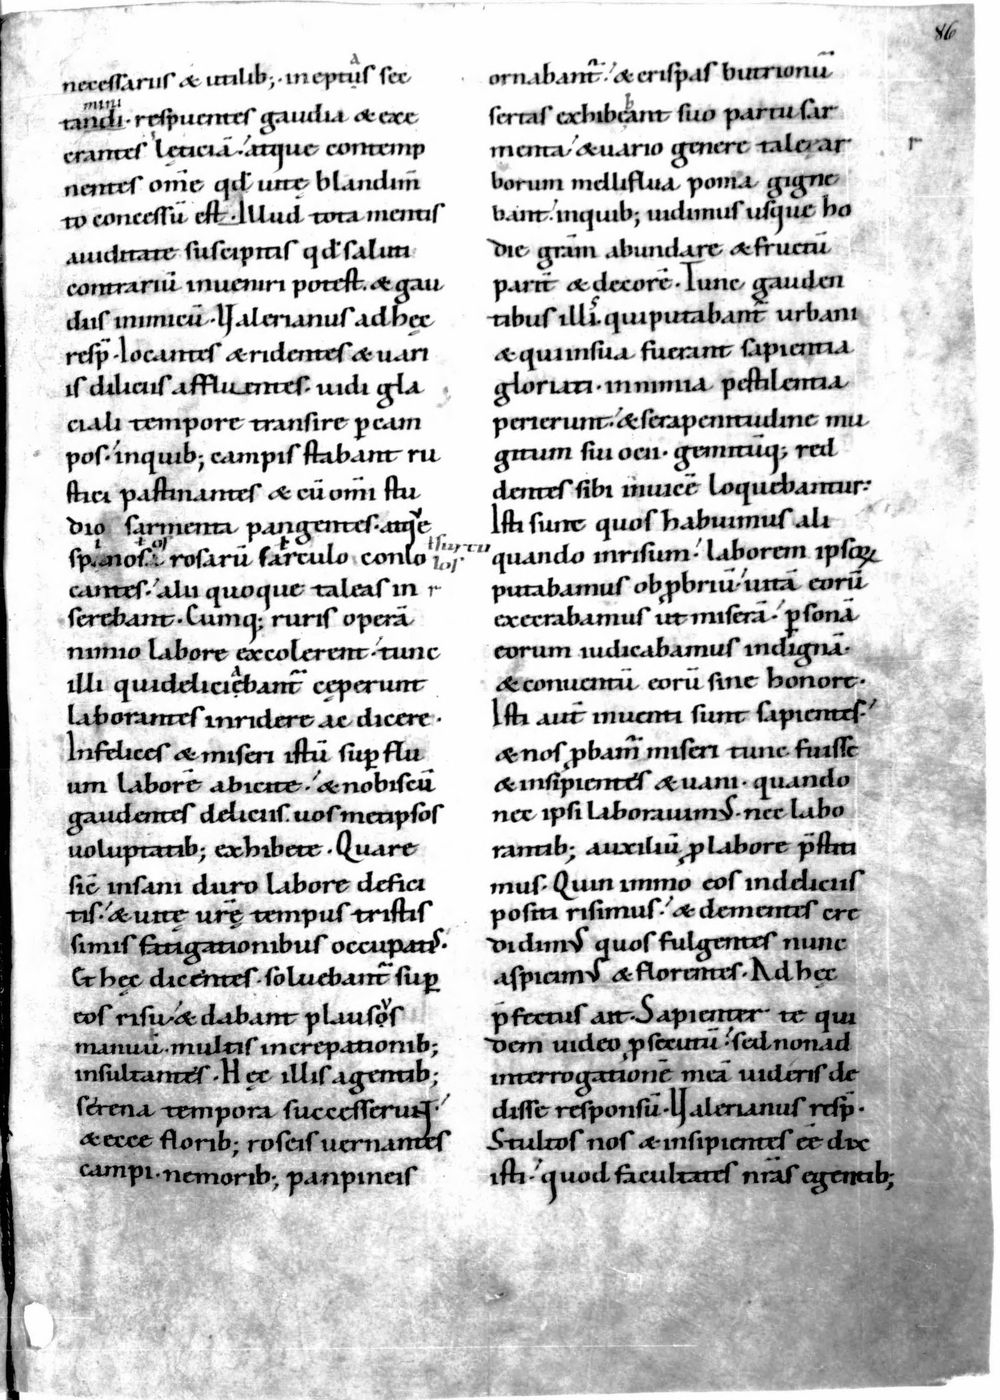 86
necessariis & utilib; · ineptus sec
tandi · respuentes gaudia & exe
crantes lętitiā · atque contemp
nentes om̄e qđ uitę blandim̄
to concessū est · Illud tota mentis
auiditate suscipitis qđ saluti
contrariū inueniri potest · & gau
diis inimicū · Valerianus ad hęc
resp̄ · Iocantes & ridentes & uari
is diliciis affluentes · uidi gla
ciali tempore transire ꝑ cam
pos · inquib; campis stabant ru
stici pastinantes & cū om̄i stu
dio sarmenta pangentes · atq̨e
spinos rosarū sarculo conlo
cantes · alii quoque taleas in
serebant · Cumq; ruris operā
nimio labore excolerent · tunc
illi qui deliciebant̄ cęperunt
laborantes inridere ac dicere ·
Infelices & miseri istū suꝑflu
um laborē abicite · & nobiscū
gaudentes deliciis · uos metipsos
uoluptatib; exhibete · Quare
sic̄ insani duro labore defici
tis · & uitę ur̄ę tempus tristis
simis fatigationibus occupatis ·
Et hęc dicentes · soluebant̄ suꝑ
eos risū · & dabant plausos
manuū · multis increpationib;
insultantes · Hęc illis agentib;
serena tempora successerunt ·
& ecce florib; roseis uernantes
campi · nemorib; panpineis
ornabant̄ · & crispas butrionū
sertas exhibeant suo partu sar
menta · & uario genere tale ar
borum melliflua poma gigne
bant · inquib; uidimus usque ho
die gr̄am abundare & fructū
parit̄ & decorē · Tunc gauden
tibus illis qui putabant̄ urbani
& qui in sua fuerant sapientia
gloriati · in nimia pestilentia
perierunt · & sera penitudine mu
gitum siu oen · gemitūq; red
dentes sibi inuicē loquebantur:
Isti sunt quos habuimus ali
quando inrisum · laborem ipsoꝝ
putabamus obꝓbriū · uitā eorū
execrabamus ut miserā · ꝑsonā
eorum iudicabamus indignā ·
& conuentū eorū sine honore ·
Isti aut̄ inuenti sunt sapientes ·
& nos ꝓbam̄ miseri tunc fuisse
& insipientes & uani · quando
nec ipsi laborauimus · nec labo
rantib; auxiliū ꝓ labore p̄stiti
mus · Quin immo eos in deliciis
positi risimus · & dementes cre
didimus quos fulgentes nunc
aspicimus & florentes · Ad hęc
p̄fectus ait · Sapienter te qui
dem uideo ꝓsecutū · sed non ad
interrogationē meā uideris de
disse responsū · Valerianus resp̄ ·
Stultos nos & insipientes eē dix
isti · quod facultates nr̄as egentib;